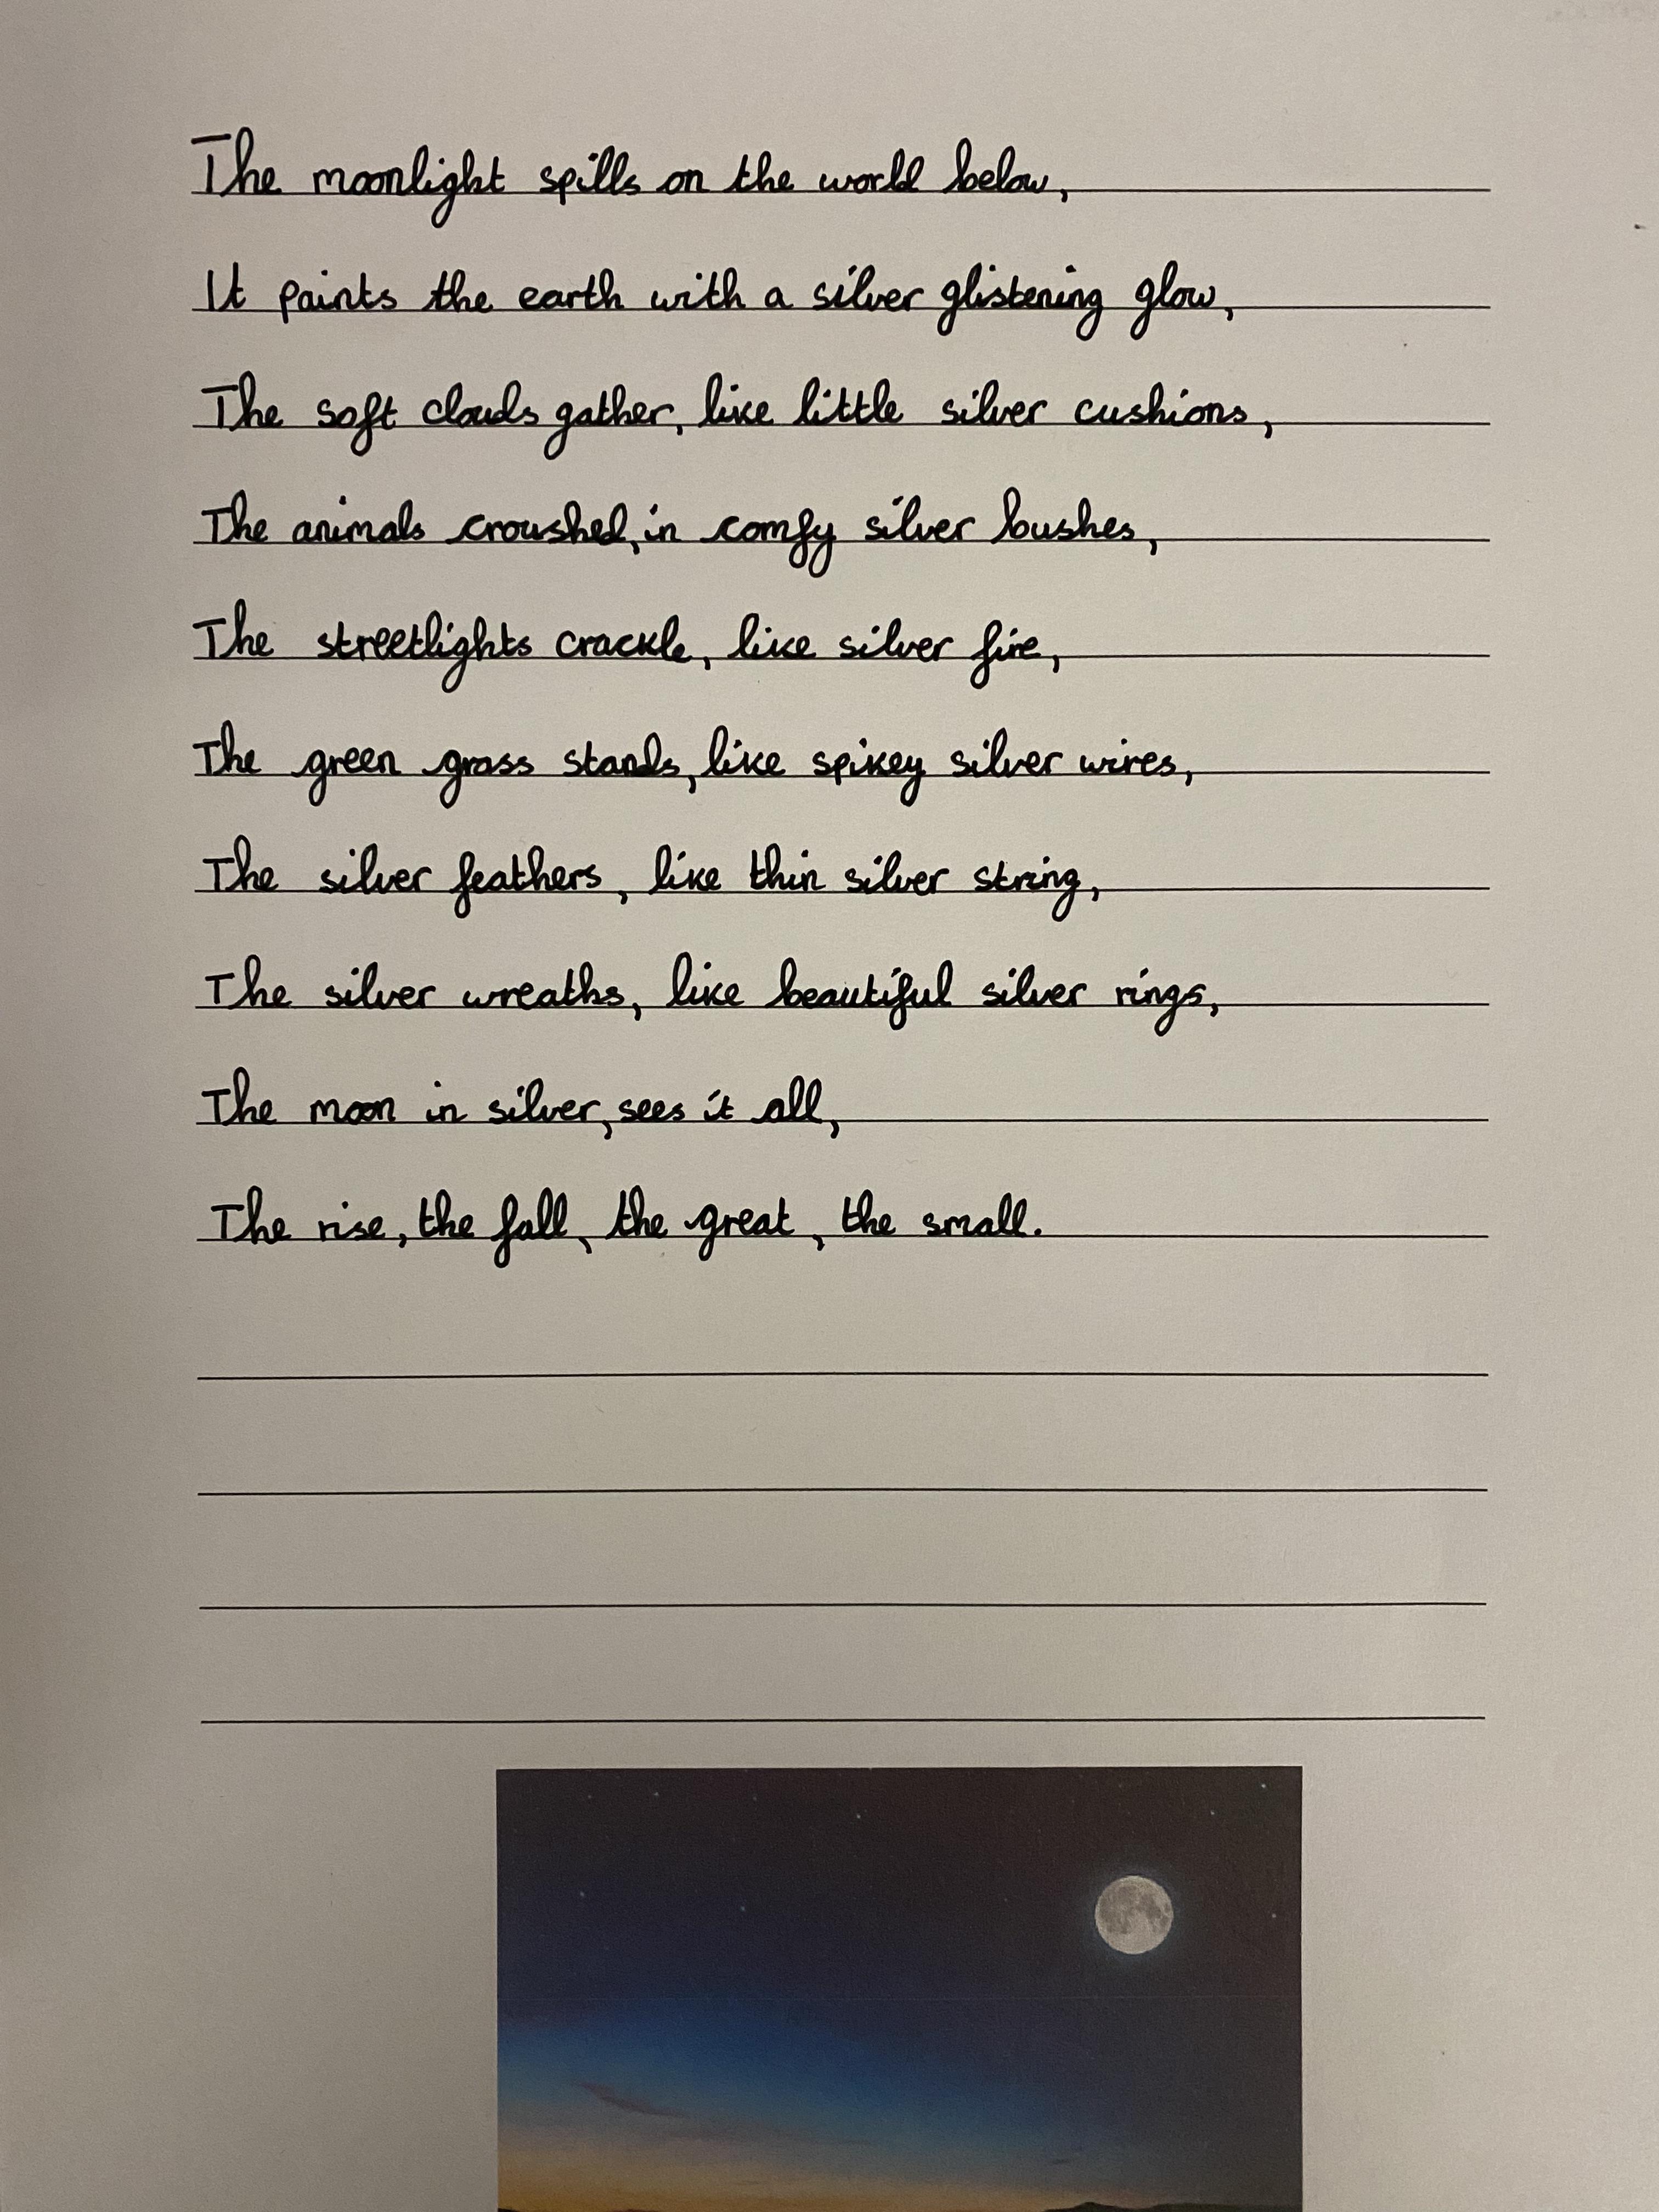 The moonlight spills on the world below,
It paints the earth with a silver glistening glow,
The soft clouds gather, like little silver cushions,
The animals croushed, in comfy silver bushes,
The streetlights crackle, like silver fire,
The green grass stands, like spikey silver wires,
The silver feathers, like thin silver string,
The silver wreaths, like beautiful silver rings,
The moon in silver, sees it all,
The rise, the fall, the great, the small.